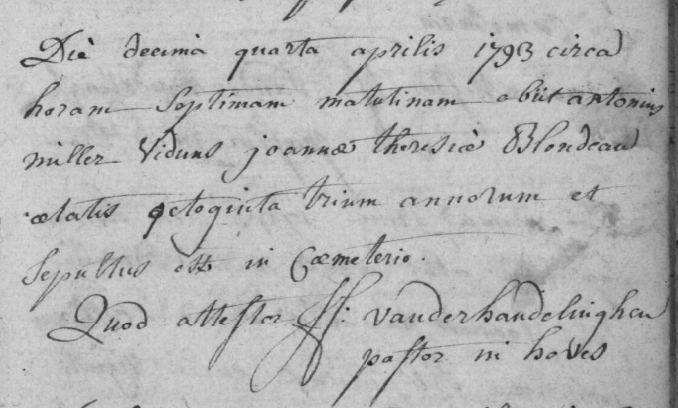 Die decima quarta aprilis 1793 circa
horam septimam matutinam obiit antonius
miller viduus joannæ theresiæ Blondeau
ætatis octoginta trium annorum et
sepultus est in Cœmeterio.
Quod attestor J: vanderhandelinghen
pastor in hoves